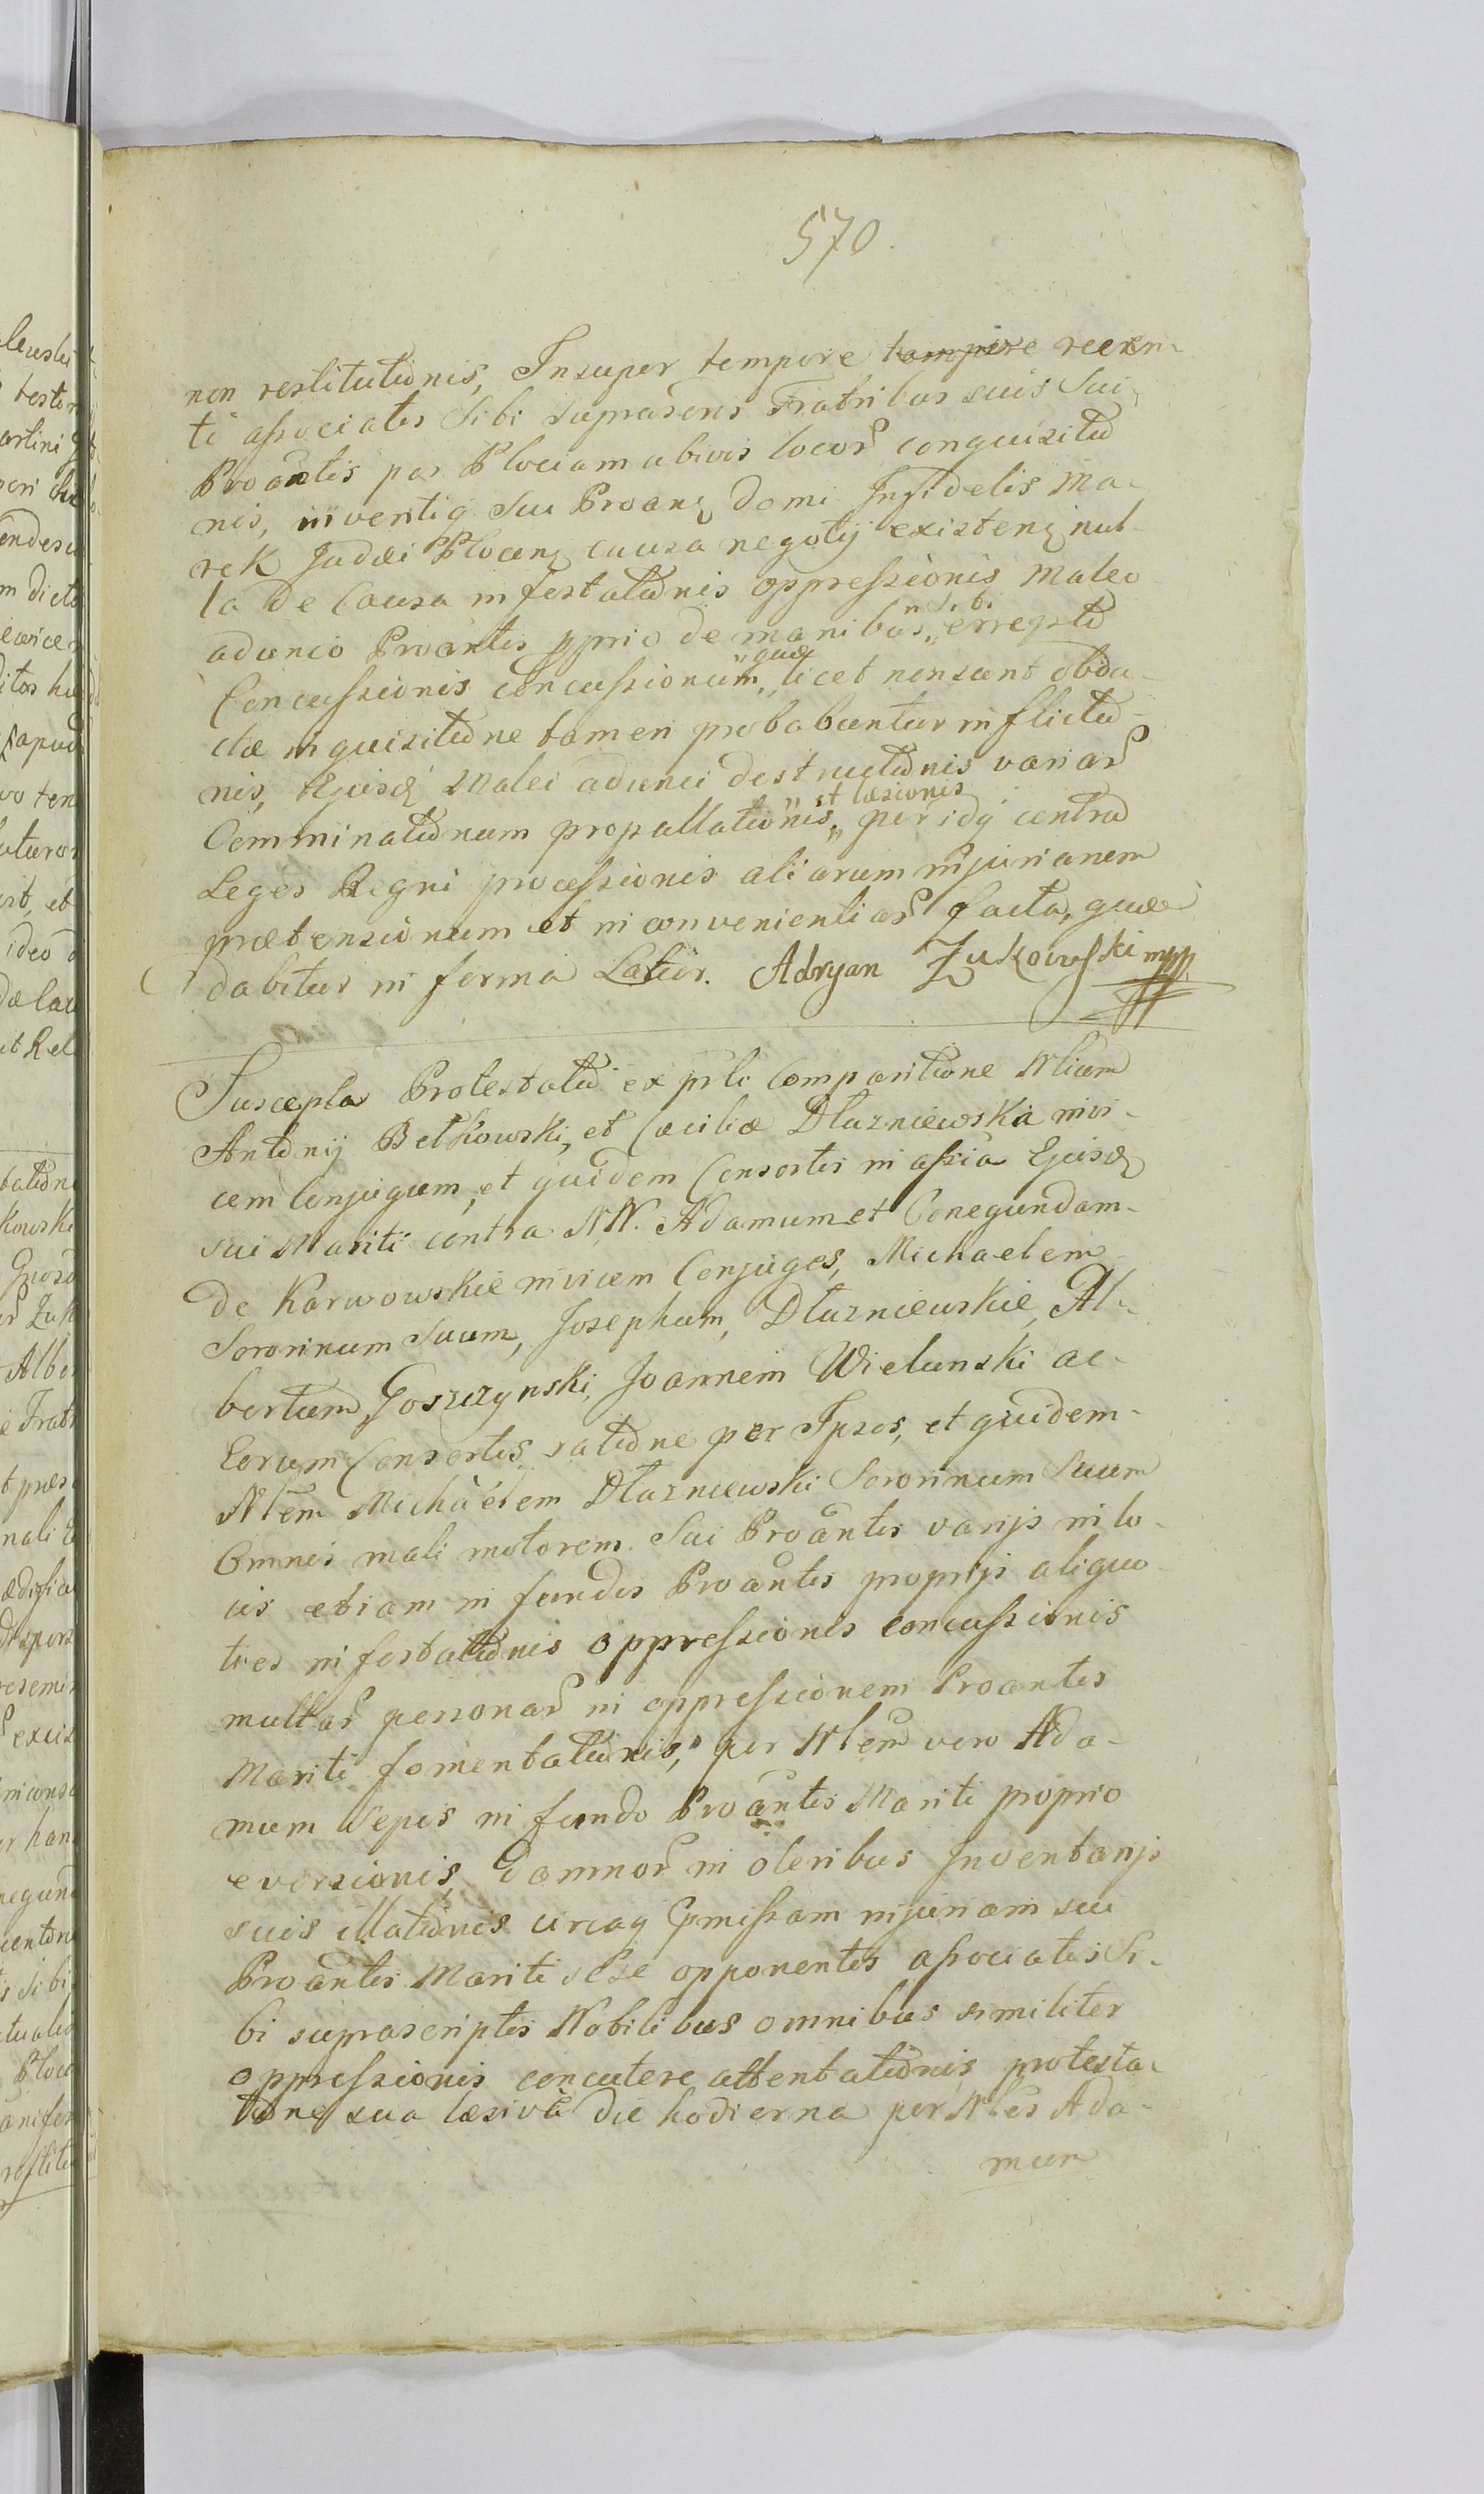 570.
non restitutionis, Insuper tempore tempore recen-
ti associatis Sibi suprascris Fratribus suis Sui
Proantis per Plociam abivis locor conquisitio
nis, inventiq Sui Proanz domi Infidelis Ma-
rek Judaei Plocenz causa negotij existenz nul-
la de Causa infestationis oppressionis Maleo
adunco Proantis pprio de manibus " Sibi " errepto
Concussionis concussionum " quae " licet non sunt obdu-
ctae inquisitione tamen probabuntur inflictio-
nis, Ejusd Malei adunci destructionis variar
Comminationum propallationis " et laesionis " per idq contra
Leges Regni processionis aliarum injurianem
praetensionum et inconvenientiar facta, quae
dabitur in forma Latior. Adryan Zukowski mpp
Suscepta Protestatio ex prli Comparitione Nlium
Antonij Betkowski, et Caeciliae Dluzniewska invi-
cem Conjugum, et quidem Consortis in assia Ejusd
sui Mariti contra N.N. Adamum et Conegundam
de Karwowskie invicem Conjuges, Michaelem
Sororinum Suum, Josephum, Dluzniewskie, Al-
bertum Goszczynski, Joannem Wielunski ac
Eorum Consortes ratione per Ipsos, et quidem
Nlem Michaelem Dluzniewski Sororinum Suum
Omnis mali motorem Sui Proantis varijs in lo-
cis etiam in fundis Proantis proprijs aliquo-
ties infestationis oppressionis concussionis
multar personar in oppressionem Proantis
Mariti fomentationis, per Nlem vero Ada-
mum Sepis in fundo Proantis Mariti proprio
eversionis, damnor in oleribus Inventarijs
suis illationis circaq Cpmissam injuriam sui
Proantis Mariti sese opponentis associatis Si-
bi suprascriptis Nobilibus omnibus similiter
oppressionis concutere attentationis protesta-
tione sua laesiva die hodierna per Nles Ada-
mum